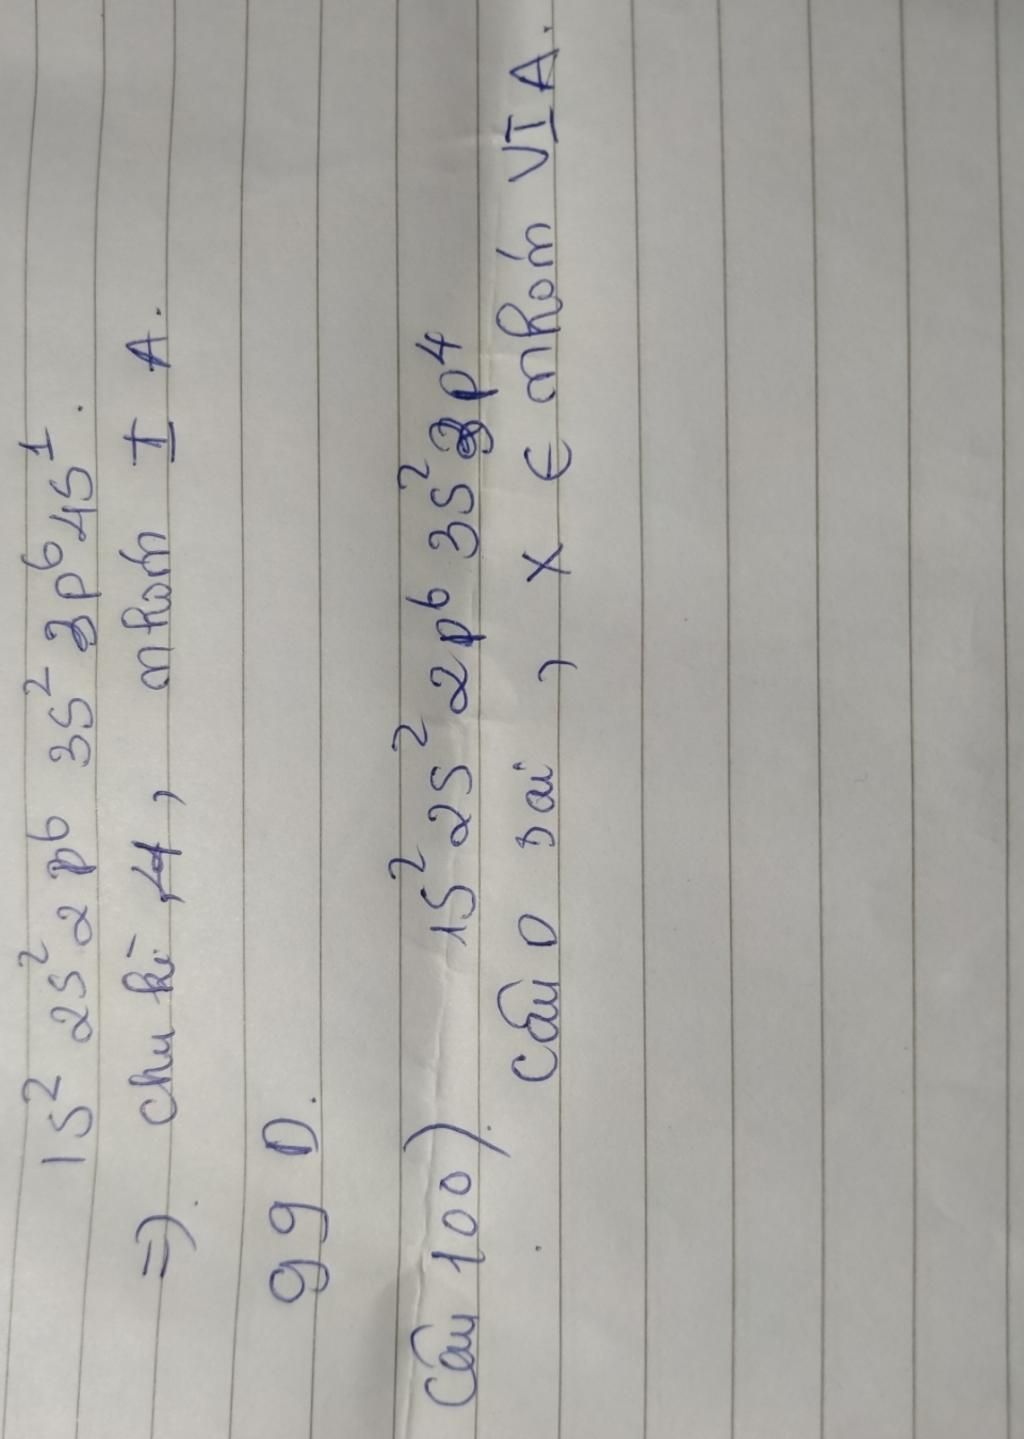 1s² 2s² 2p⁶ 3s² 3p⁶ 4s¹.
=) chu kì 4, nhóm I A.
99 D.
Câu 100) 1s² 2s² 2p⁶ 3s² 3p⁴
Câu D sai, X ∈ nhóm VI A.